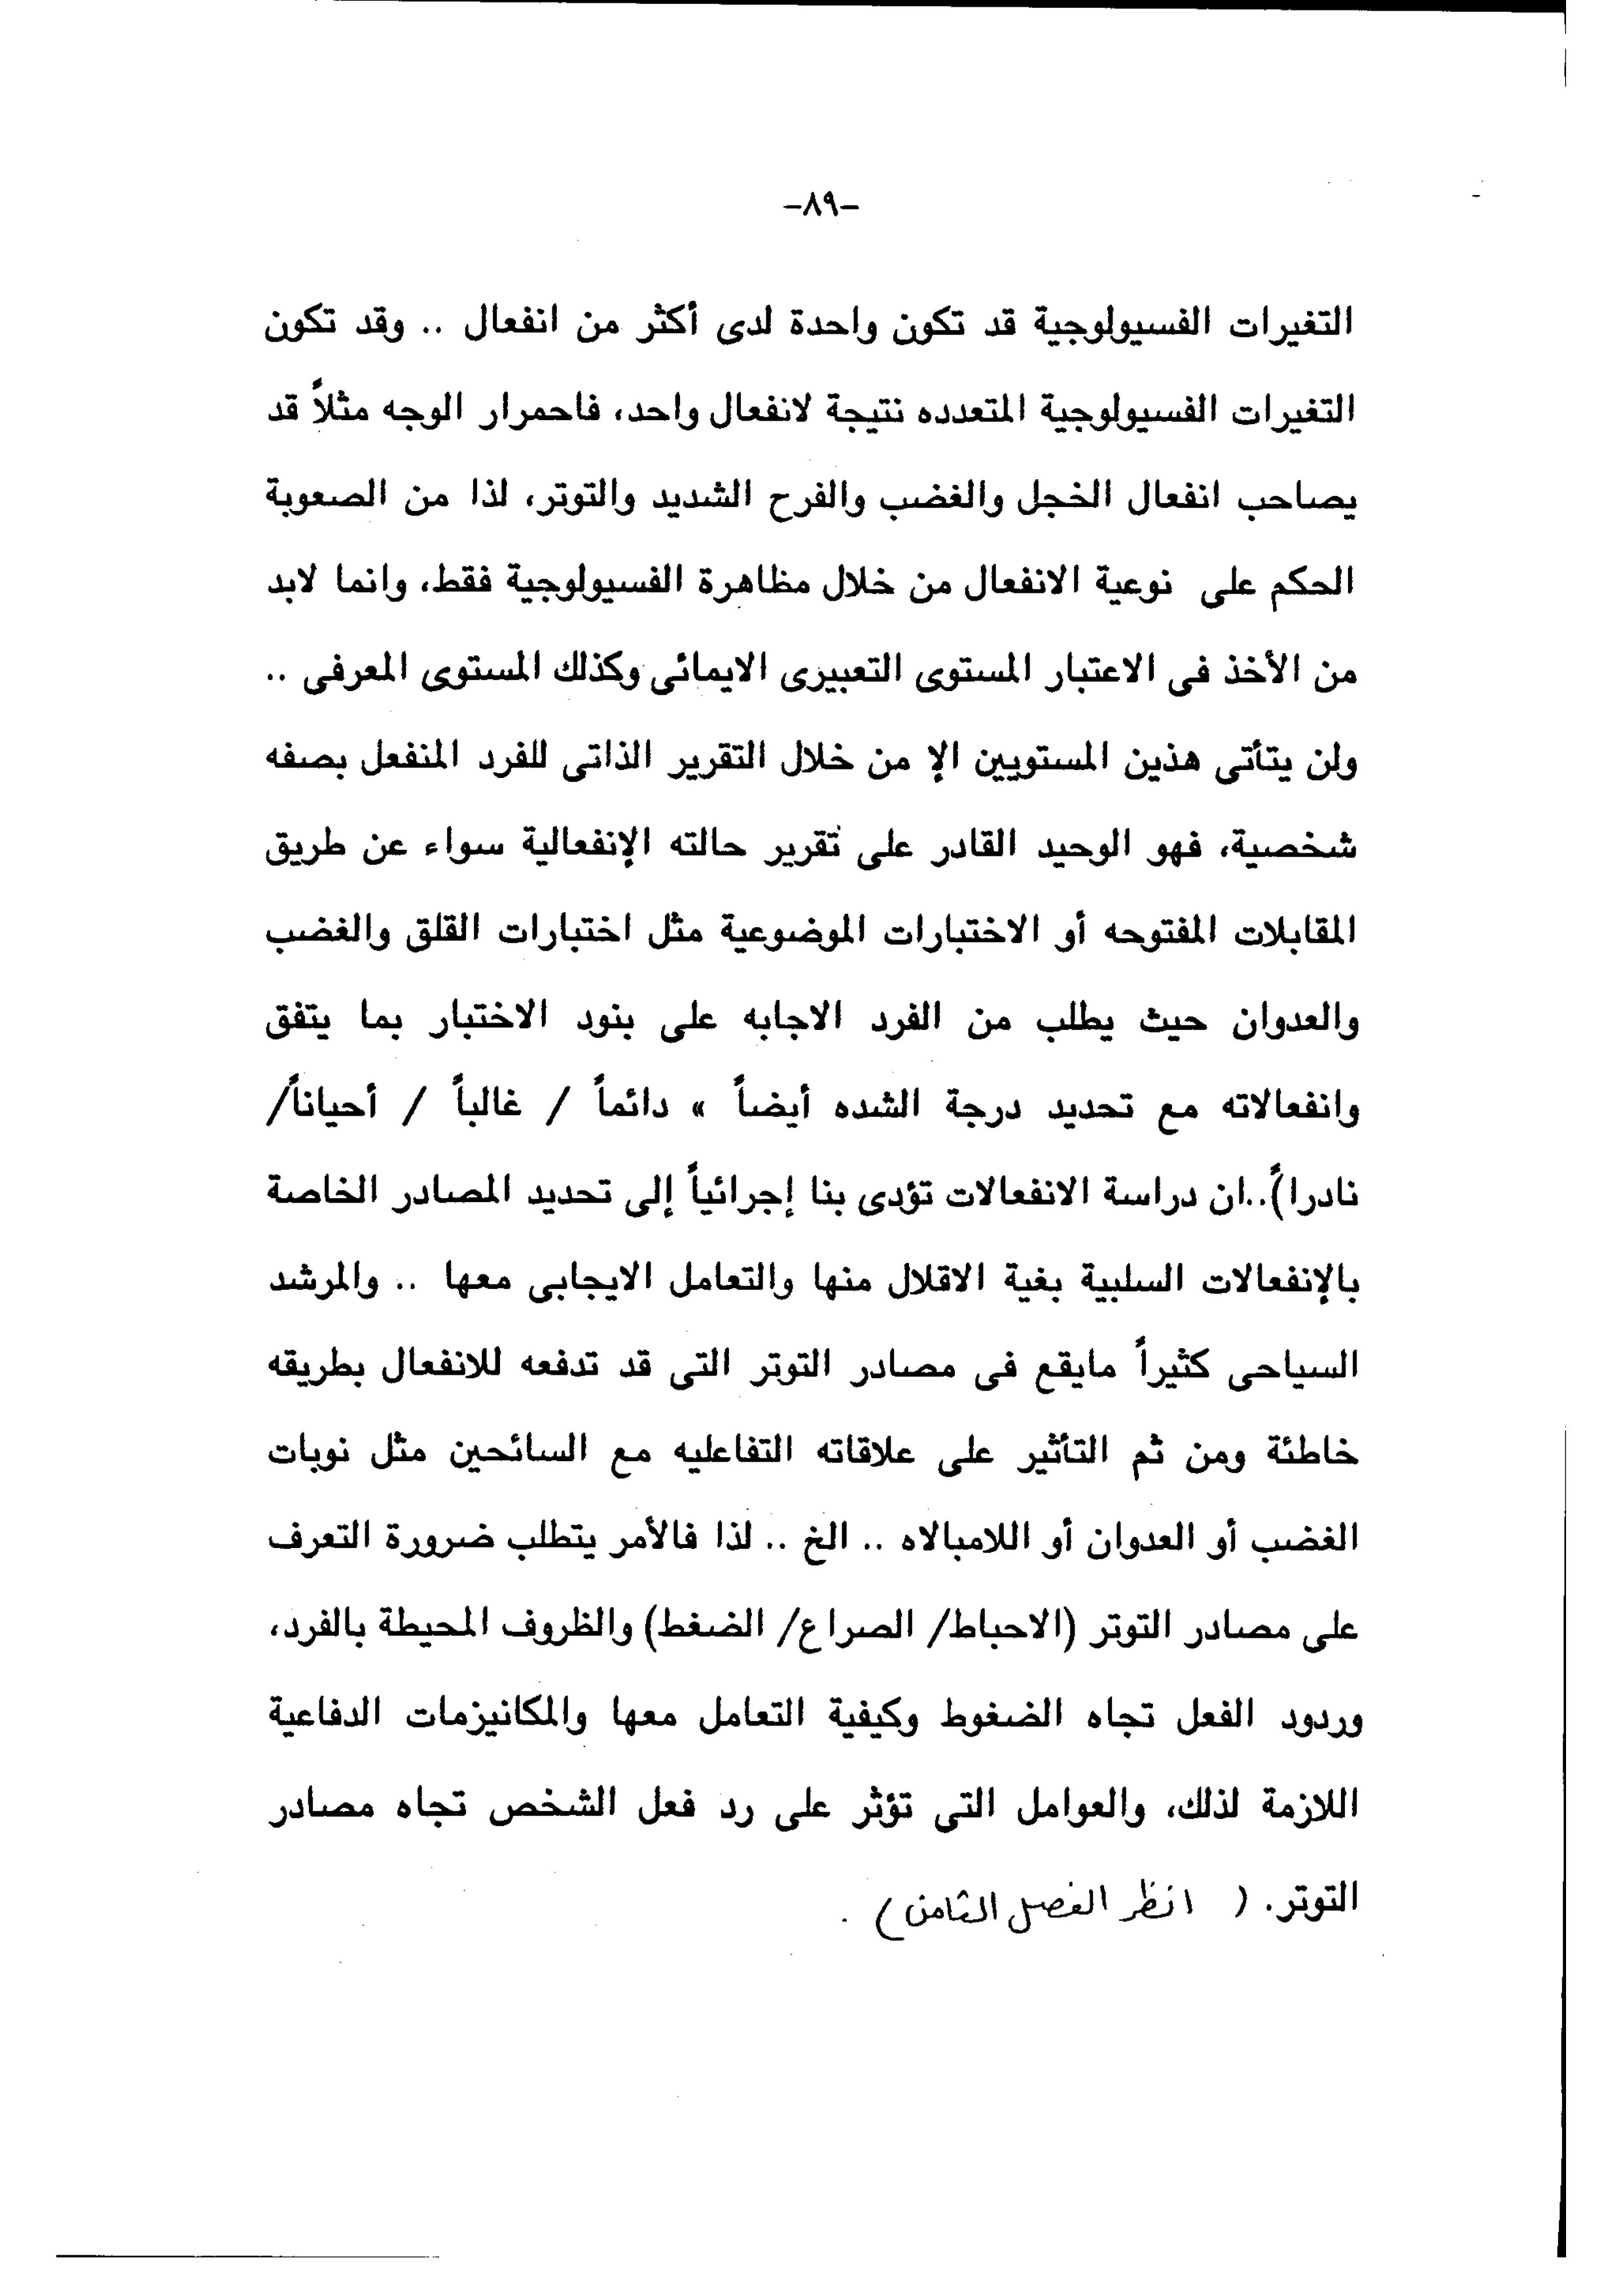 -٨٩-
التغيرات الفسيولوجية قد تكون واحدة لدى أكثر من انفعال .. وقد تكون
التغيرات الفسيولوجية المتعدده نتيجة لانفعال واحد، فاحمرار الوجه مثلاً قد
يصاحب انفعال الخجل والغضب والفرح الشديد والتوتر، لذا من الصعوبة
الحكم على نوعية الانفعال من خلال مظاهرة الفسيولوجية فقط، وانما لابد
من الأخذ فى الاعتبار المستوى التعبيرى الايمائى وكذلك المستوى المعرفى ..
ولن يتأتى هذين المستويين الإ من خلال التقرير الذاتى للفرد المنفعل بصفه
شخصية، فهو الوحيد القادر على تقرير حالته الإنفعالية سواء عن طريق
المقابلات المفتوحه أو الاختبارات الموضوعية مثل اختبارات القلق والغضب
والعدوان حيث يطلب من الفرد الاجابه على بنود الاختبار بما يتفق
وانفعالاته مع تحديد درجة الشده أيضاً » دائماً / غالباً / أحياناً/
نادراً)..ان دراسة الانفعالات تؤدى بنا إجرائياً إلى تحديد المصادر الخاصة
بالإنفعالات السلبية بغية الاقلال منها والتعامل الايجابى معها .. والمرشد
السياحى كثيراً مايقع فى مصادر التوتر التى قد تدفعه للانفعال بطريقه
خاطئة ومن ثم التأثير على علاقاته التفاعليه مع السائحين مثل نوبات
الغضب أو العدوان أو اللامبالاه .. الخ .. لذا فالأمر يتطلب ضرورة التعرف
على مصادر التوتر (الاحباط/ الصراع/ الضغط) والظروف المحيطة بالفرد،
وردود الفعل تجاه الضغوط وكيفية التعامل معها والمكانيزمات الدفاعية
اللازمة لذلك، والعوامل التى تؤثر على رد فعل الشخص تجاه مصادر
التوتر. ( انظر الفصل الثامن ) .